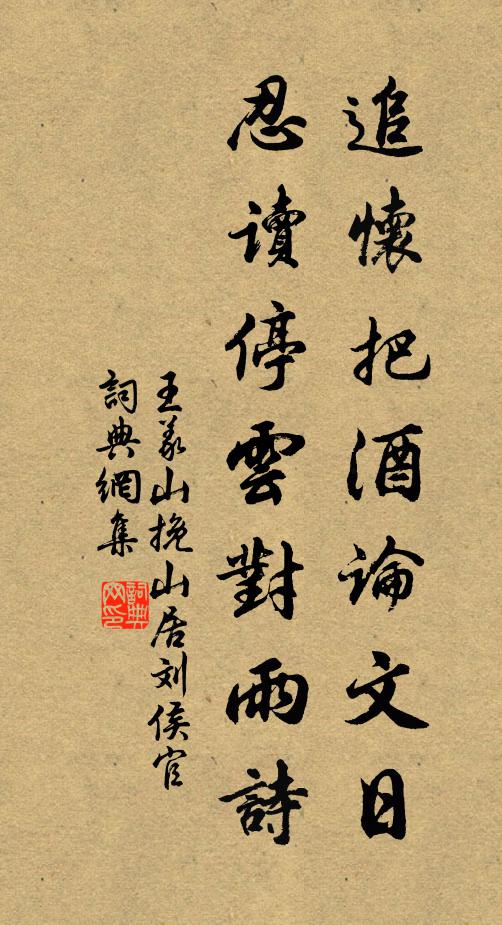 追懷把酒論文日
忍讀停雲對雨詩
王義山挽山居刘侯官
詞典網集
詞典网印